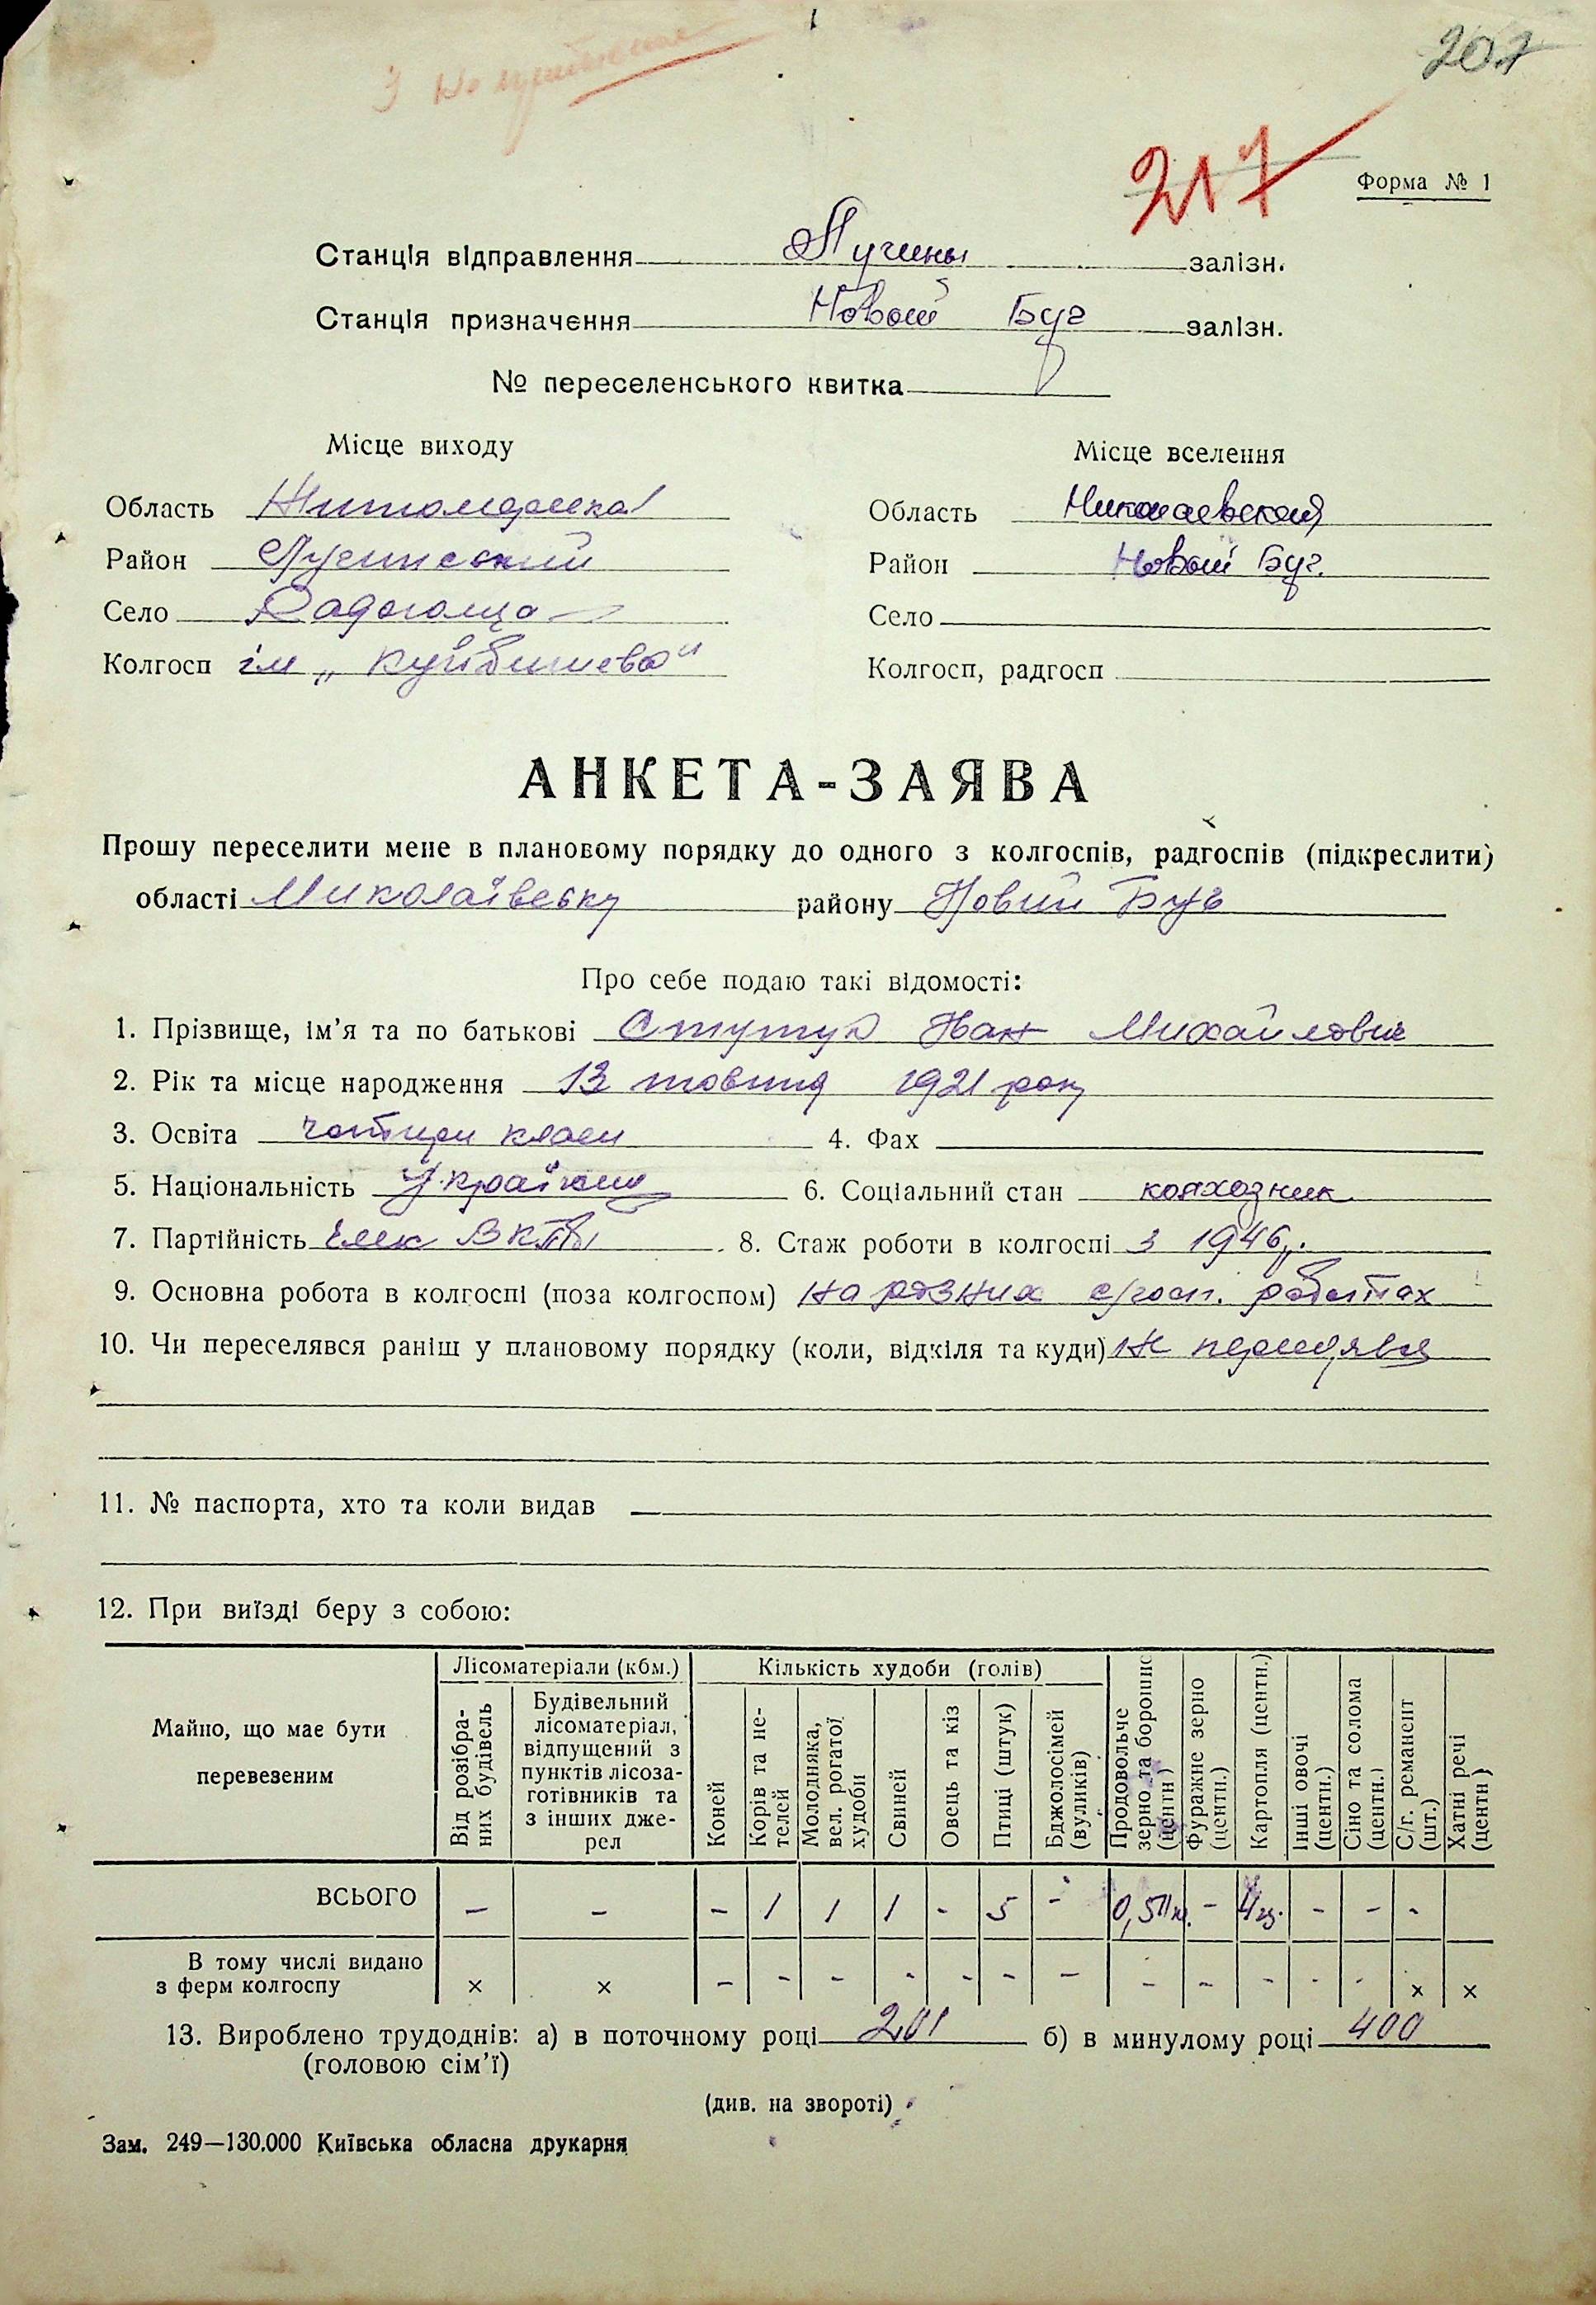 207
217
Форма № 1
Станція відправлення Лугины залізн.
Станція призначення Новый Буг залізн.
№ переселенського квитка
Місце виходу
Місце вселення
Область Житомирська
Область Николаевская
Район Лугинський
Район Новый Буг.
Село Радогоща
Село
Колгосп ім „Куйбишева"
Колгосп, радгосп
АНКЕТА-ЗАЯВА
Прошу переселити мене в плановому порядку до одного з колгоспів, радгоспів (підкреслити)
області Миколаївську району Новий Буг
Про себе подаю такі відомості:
1. Прізвище, ім'я та по батькові Иван Михайлович
2. Рік та місце народження 13 жовтня 1921 року
3. Освіта чотири класи 4. Фах
5. Національність Українець 6. Соціальний стан колхозник
7. Партійність член ВКПб 8. Стаж роботи в колгоспі з 1946 р.
9. Основна робота в колгоспі (поза колгоспом) на різних с/госп. роботах
10. Чи переселявся раніш у плановому порядку (коли, відкіля та куди) Не
11. № паспорта, хто та коли видав
12. При виїзді беру з собою:
Майно, що має бути перевезеним
Лісоматеріали (кбм.)
Кількість худоби (голів)
Від розібраних будівель
Будівельний лісоматеріал, відпущений з пунктів лісозаготівників та з інших джерел
Коней
Корів та нетелей
Молодняка, вел. рогатої худоби
Свиней
Овець та кіз
Птиці (штук)
Бджолосімей (вуликів)
Продовольче зерно та борошно (центн)
Фуражне зерно (центн.)
Картопля (центн.)
Інші овочі (центн.)
Сіно та солома (центн.)
С/г. реманент (шт.)
Хатні речі (центн)
ВСЬОГО – – – 1 1 1 - 5 - 0,5 - 4 ц. - - -
В тому числі видано з ферм колгоспу × × – - - - - - – - - - - - × ×
13. Вироблено трудоднів: а) в поточному році 201 б) в минулому році 400
(головою сім'ї)
(див. на звороті)
Зам. 249—130.000 Київська обласна друкарня